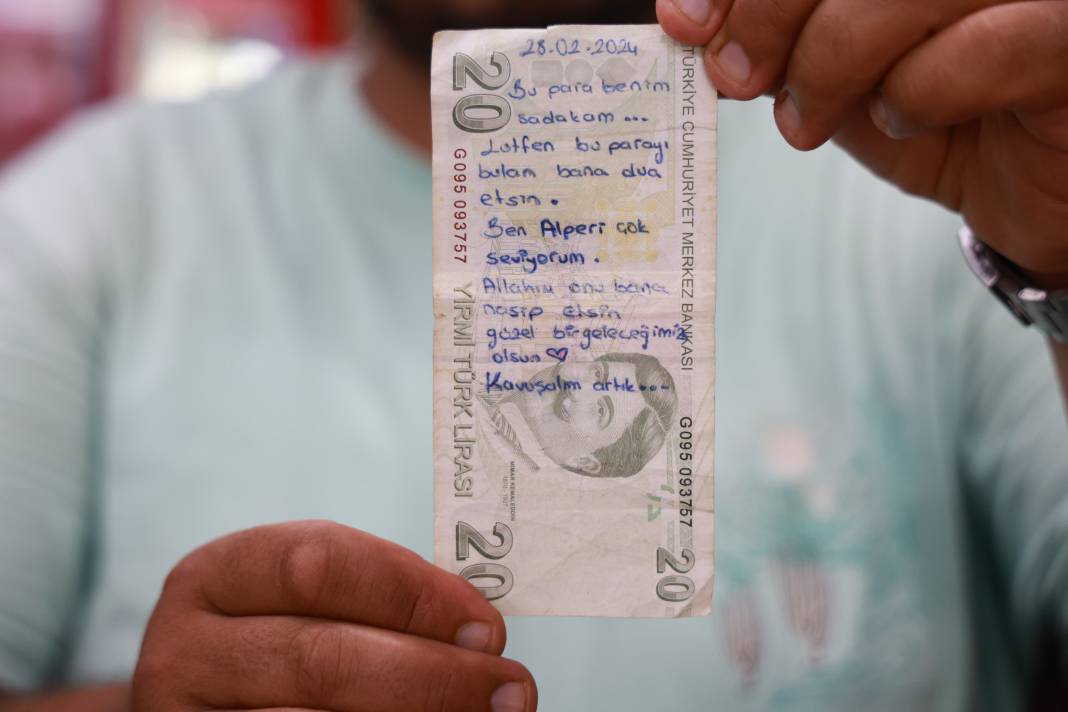 28.02.2024
Bu para benim
sadakam ...
Lutfen bu parayı
bulam bana dua
etsin.
Ben Alperi çok
seviyorum.
Allahım onu bana
nasip etsin
güzel bir geleceğimiz
olsun ♡
Kavuşalım artık....
20
G095 093757
YİRMİ TÜRK LİRASI
20
TÜRKİYE CUMHURİYET MERKEZ BANKASI
G095 093757
20
MİMAR KEMALEDDİN
1870 - 1927